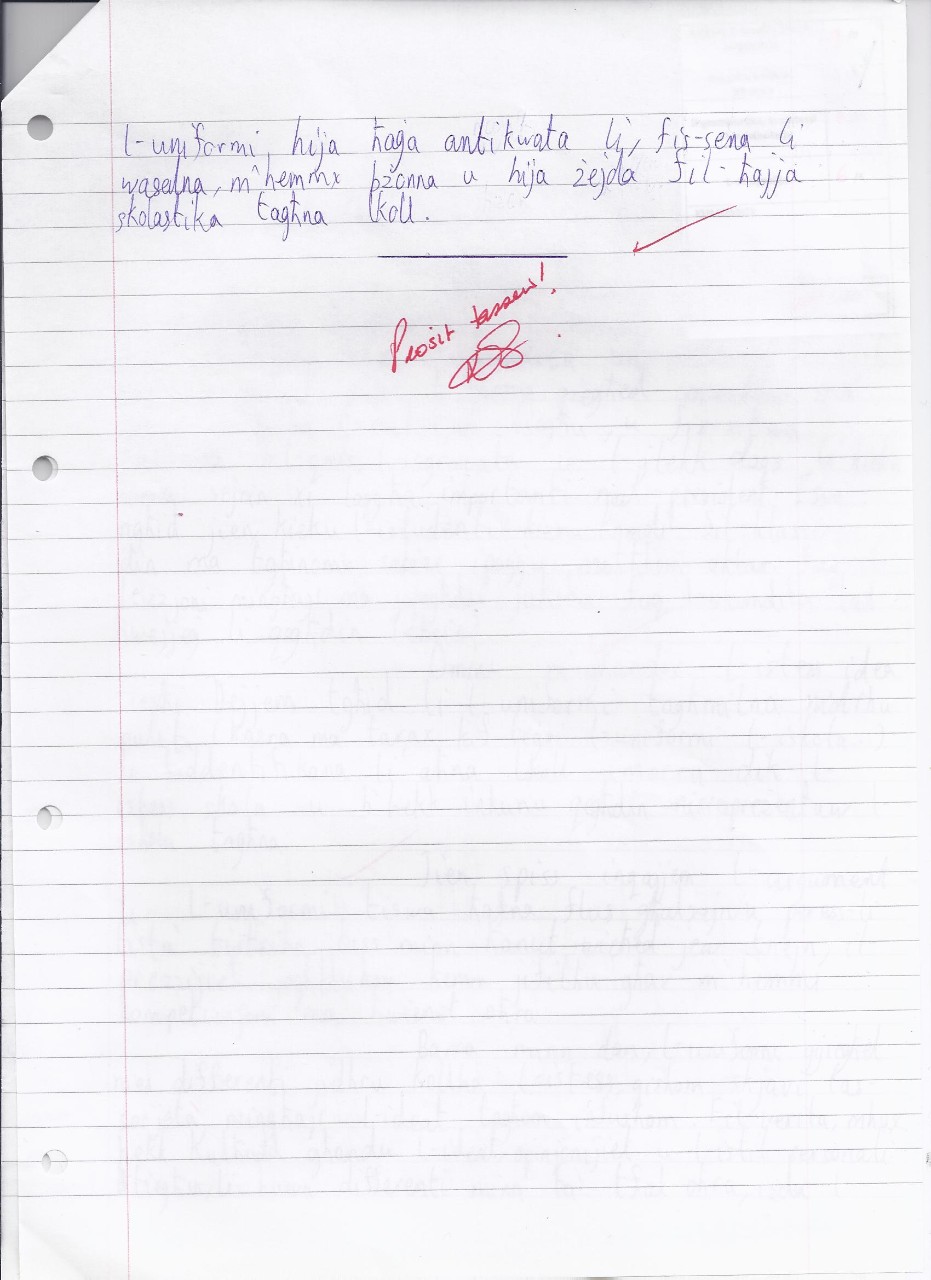 l-uniformi, hija ħaġa antikwata li, fis-sena li
wasalna, m'hemmx bżonna u hija żejda fil-ħajja
skolastika tagħna lkoll.
Prosit tassew!